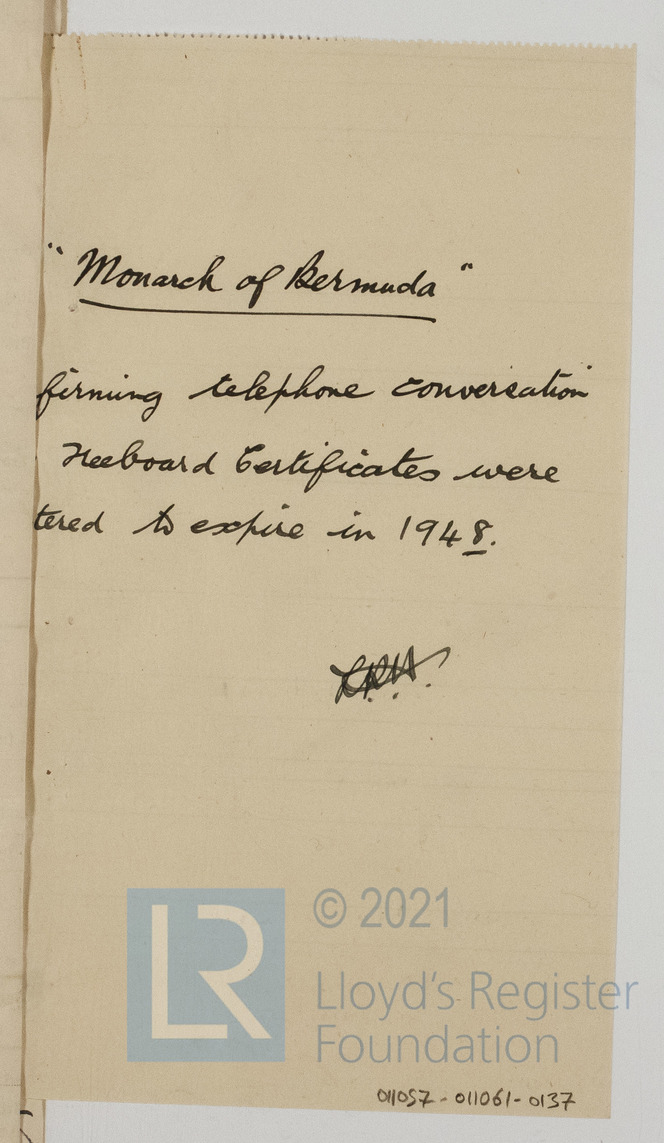 "Monarch of Bermuda"
firming telephone conversation
Freeboard Certificates were
tered to expire in 1948.
LR
© 2021
Lloyd's Register
Foundation
011057-011061-0137